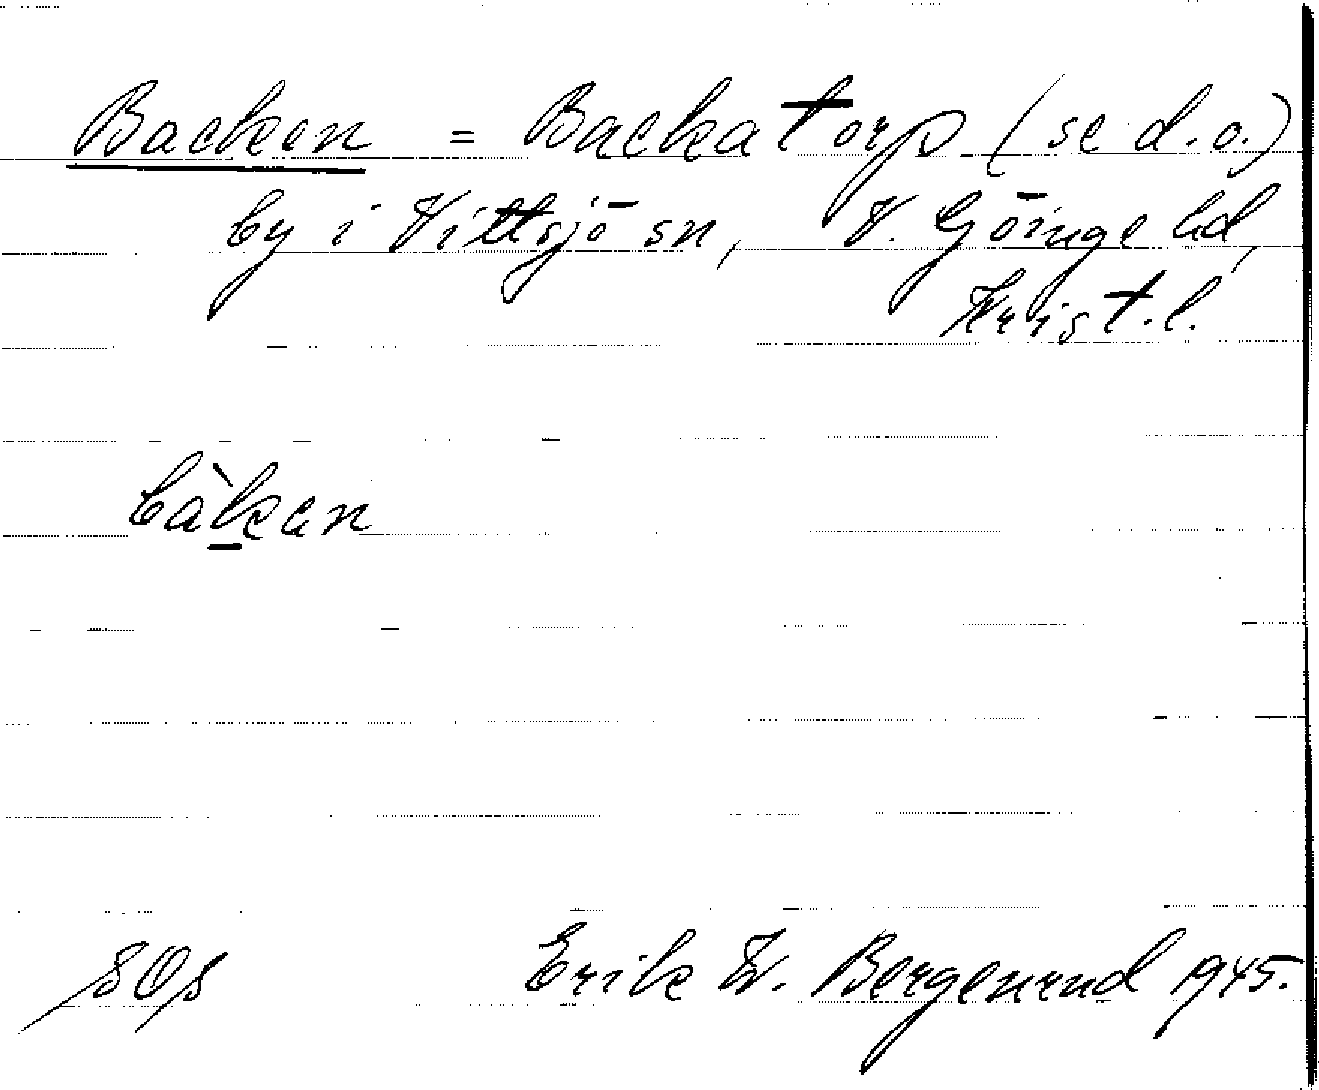 Backen = Backatorp (se d.o.)
by i Vittsjö sn, V. Göinge hd,
Krist.l.
bàk̲en
SOS Erik W. Bergenrud 1945.